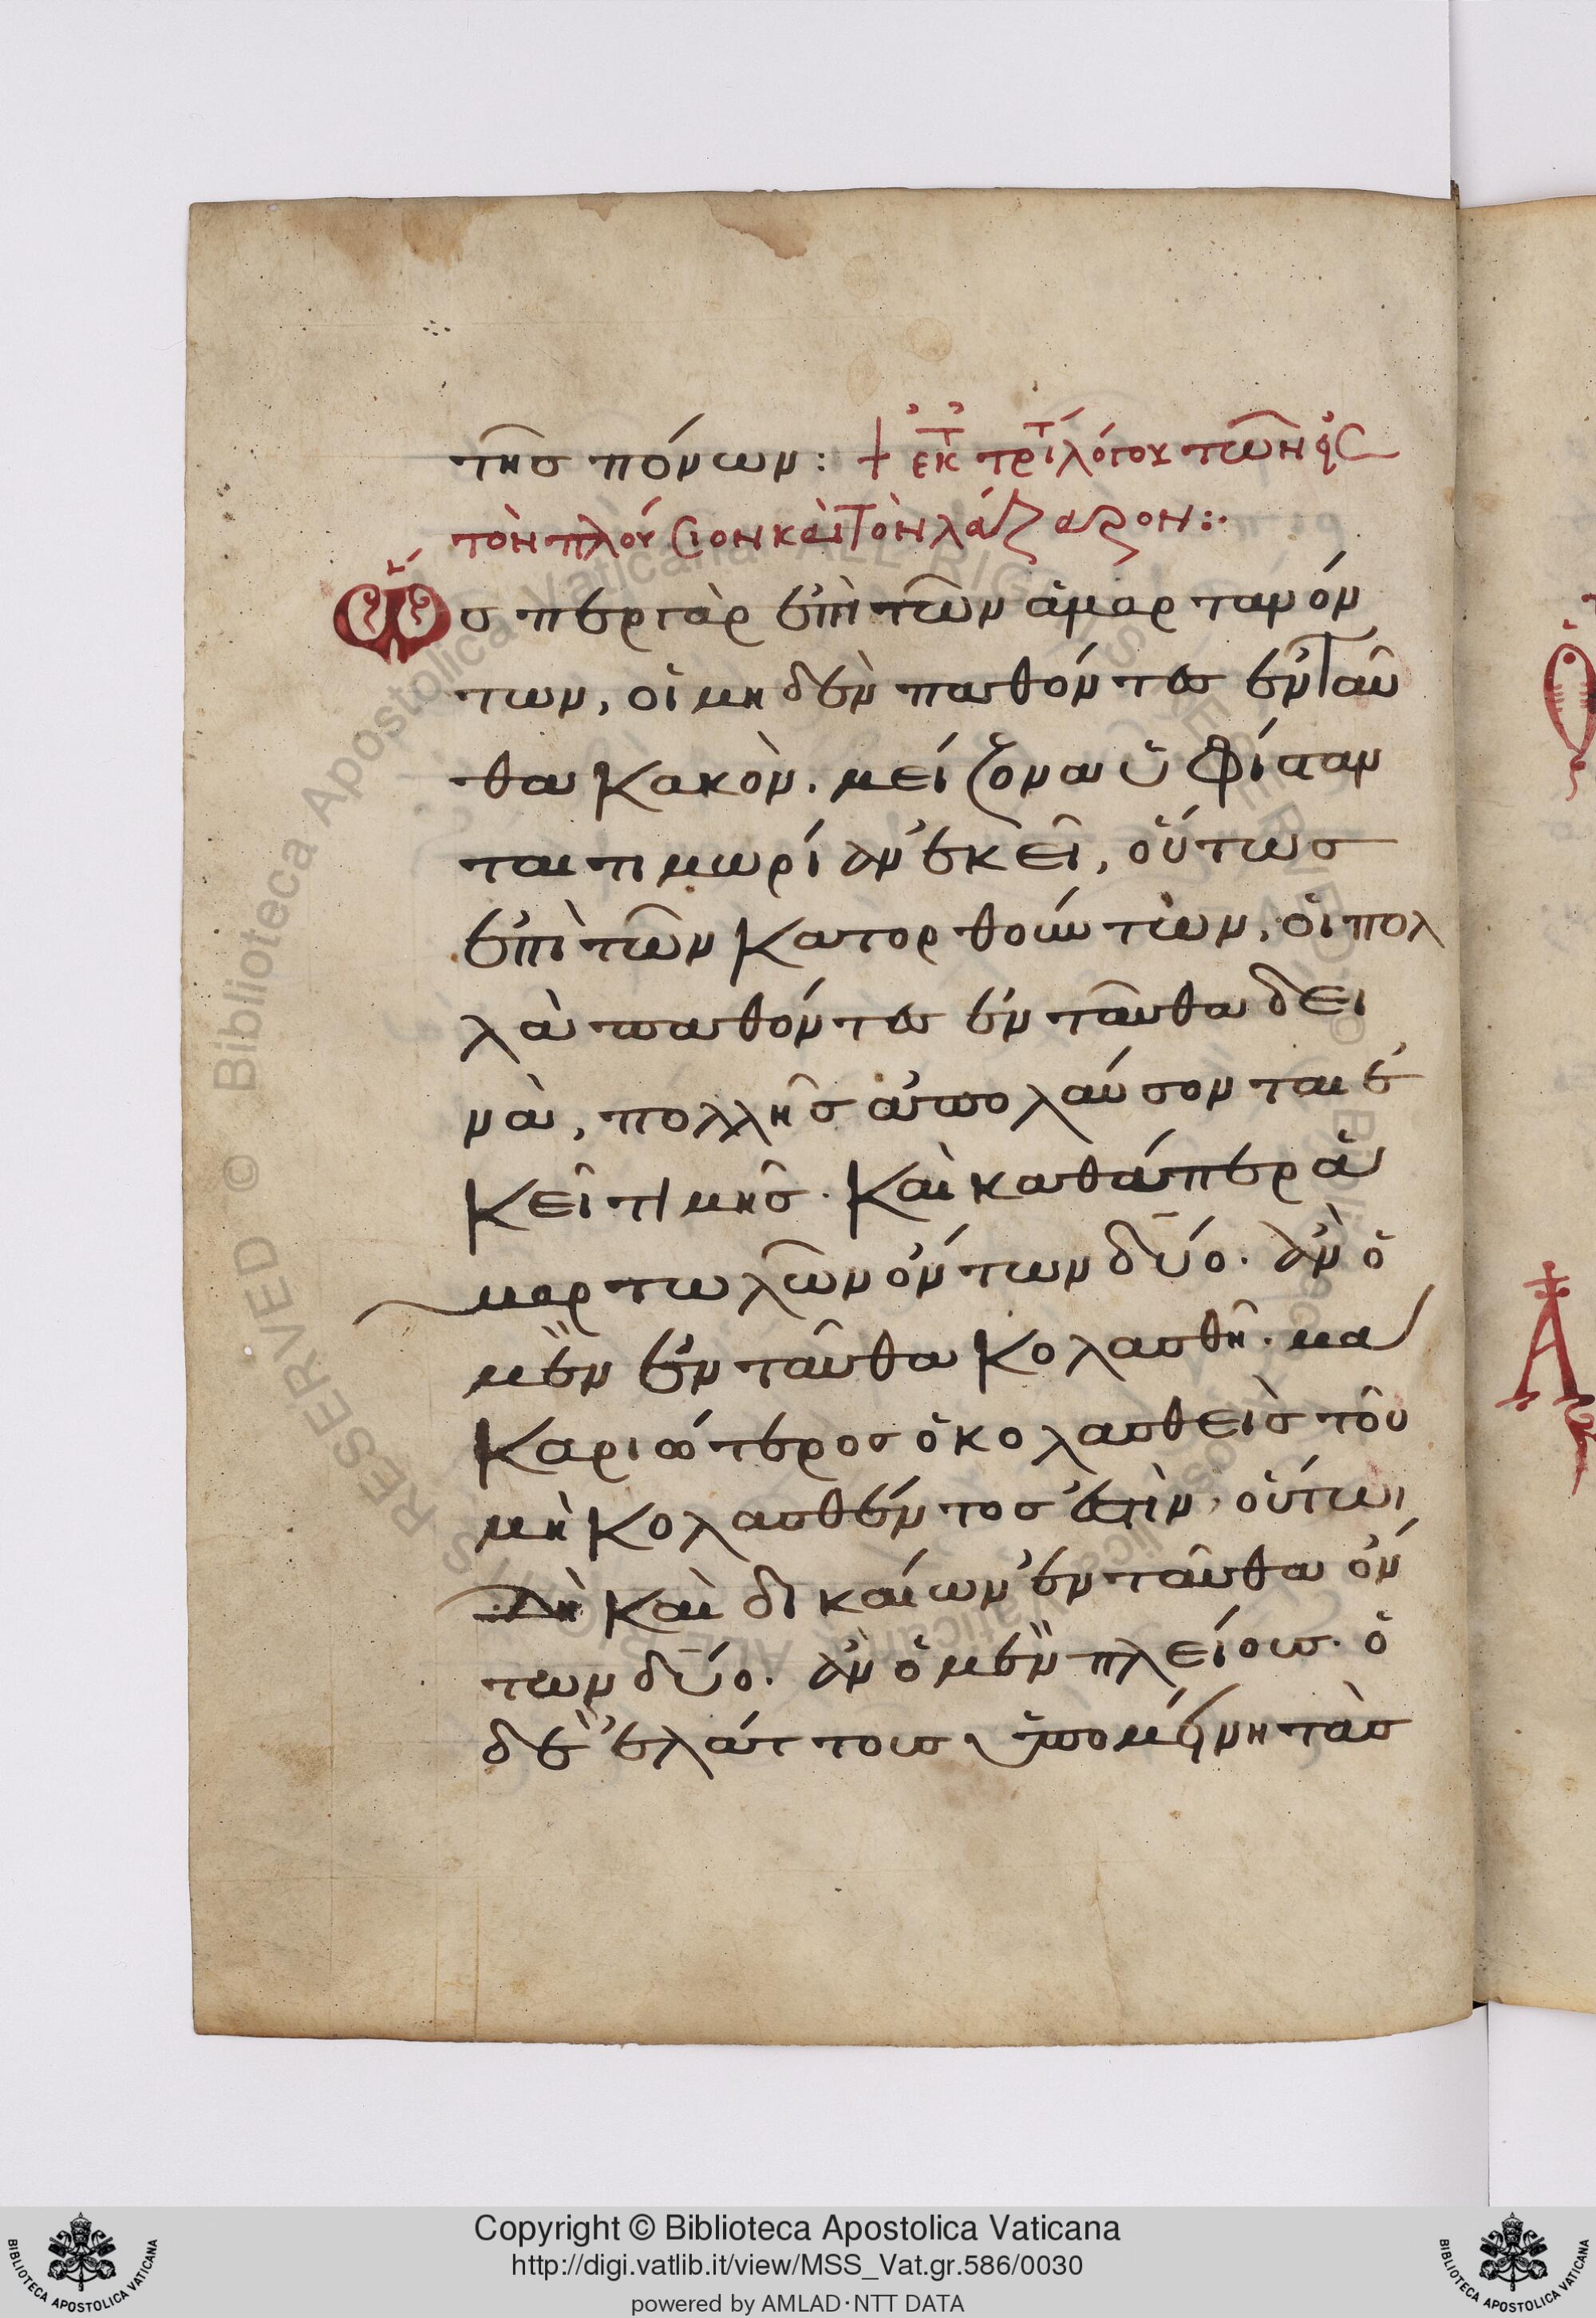 τῆς πόνων: + ἐκ τ τρίτ λόγου τῶν εἰς
τὸν πλούσιον καὶ τὸν λάζαρον:·
Ὥσπερ γὰρ ἐπὶ τῶν ἁμαρτανόν
των, οἱ μηδὲν παθόντες ἐνταῦ
θα κακὸν. μείζονα ὑφίσταν
ται τιμωρίαν ἐκεῖ, οὕτως
ἐπὶ τῶν κατορθούντων, οἱ πολ
λὰ παθόντες ἐνταῦθα δει
νὰ, πολλῆς ἀπολαύσονται ἐ
κεῖ τιμῆς. καὶ καθάπερ ἁ
μαρτωλῶν ὄντων δύο. ἂν ὁ
μὲν ἐνταῦθα κολασθῆ. μα
καριώτερος ὁ κολασθεὶς τοῦ
μὴ κολασθέντος ἐστὶν, οὕτω
δὴ καὶ δικαίων ἐνταῦθα ὄν
των δύο. ἂν ὁ μὲν πλείους. ὁ
δὲ ἐλάττους ὑπομένη τὰς
Copyright © Biblioteca Apostolica Vaticana
http://digi.vatlib.it/view/MSS_Vat.gr.586/0030
powered by AMLAD·NTT DATA